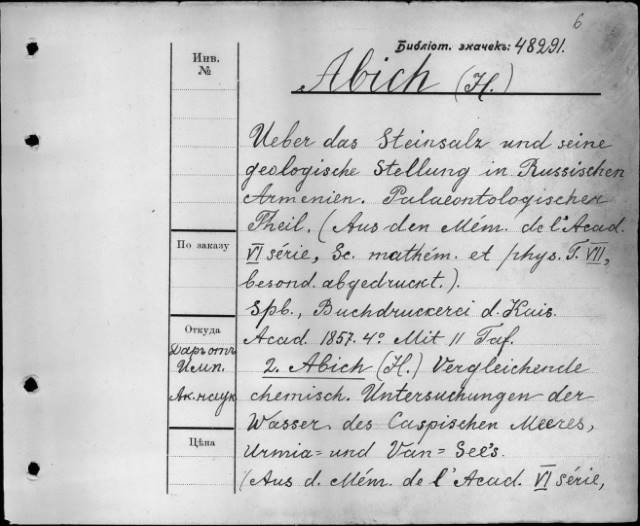 6
Библіот. значекъ: 48291.
Инв.
№
Abich (H.)
Ueber das Steinsalz und seine
geologische Stellung in Russischen
Armenien. Palaeontologischer
Theil. (Aus den Mém. de l'Acad.
VI série, Sc. mathém. et phys. T. VII,
besond. abgedruckt.).
Spb., Buchdruckerei d. Kais.
Acad. 1857. 4º Mit 11 Taf.
2. Abich (H.) Vergleichende
chemisch. Untersuchungen der
Wasser des Caspischen Meeres,
Urmia= und Van= See's.
(Aus d. Mém. de l'Acad. VI série,
По заказу
Откуда
Даръ отъ
Имп.
Ак. наук
Цѣна